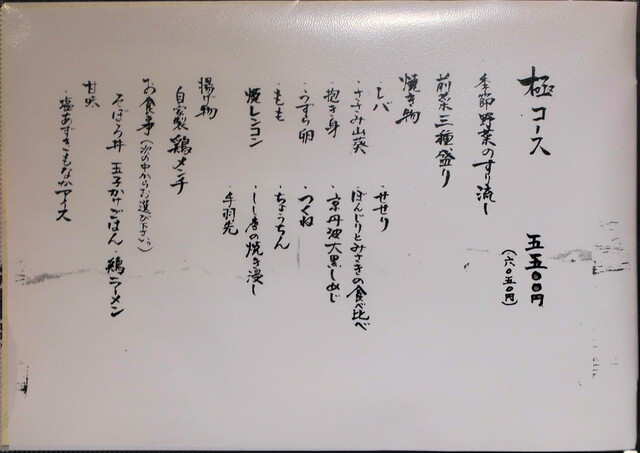 極コース 五五〇〇円
(六〇五〇円)
季節野菜のすり流し
前菜三種盛り
焼き物
・レバ ・せせり
・ささみ山葵 ・ぼんじりとみさきの食べ比べ
・抱き身 ・京丹波大黒しめじ
・うずら卵 ・つくね
・もも ・ちょうちん
・焼レンコン ・しし唐の焼き浸し
・手羽先
揚げ物
自家製 鶏メンチ
お食事(次の中からお選び下さい)
そぼろ丼 玉子かけごはん・鶏ラーメン
甘味
・塩あずきもなかアイス